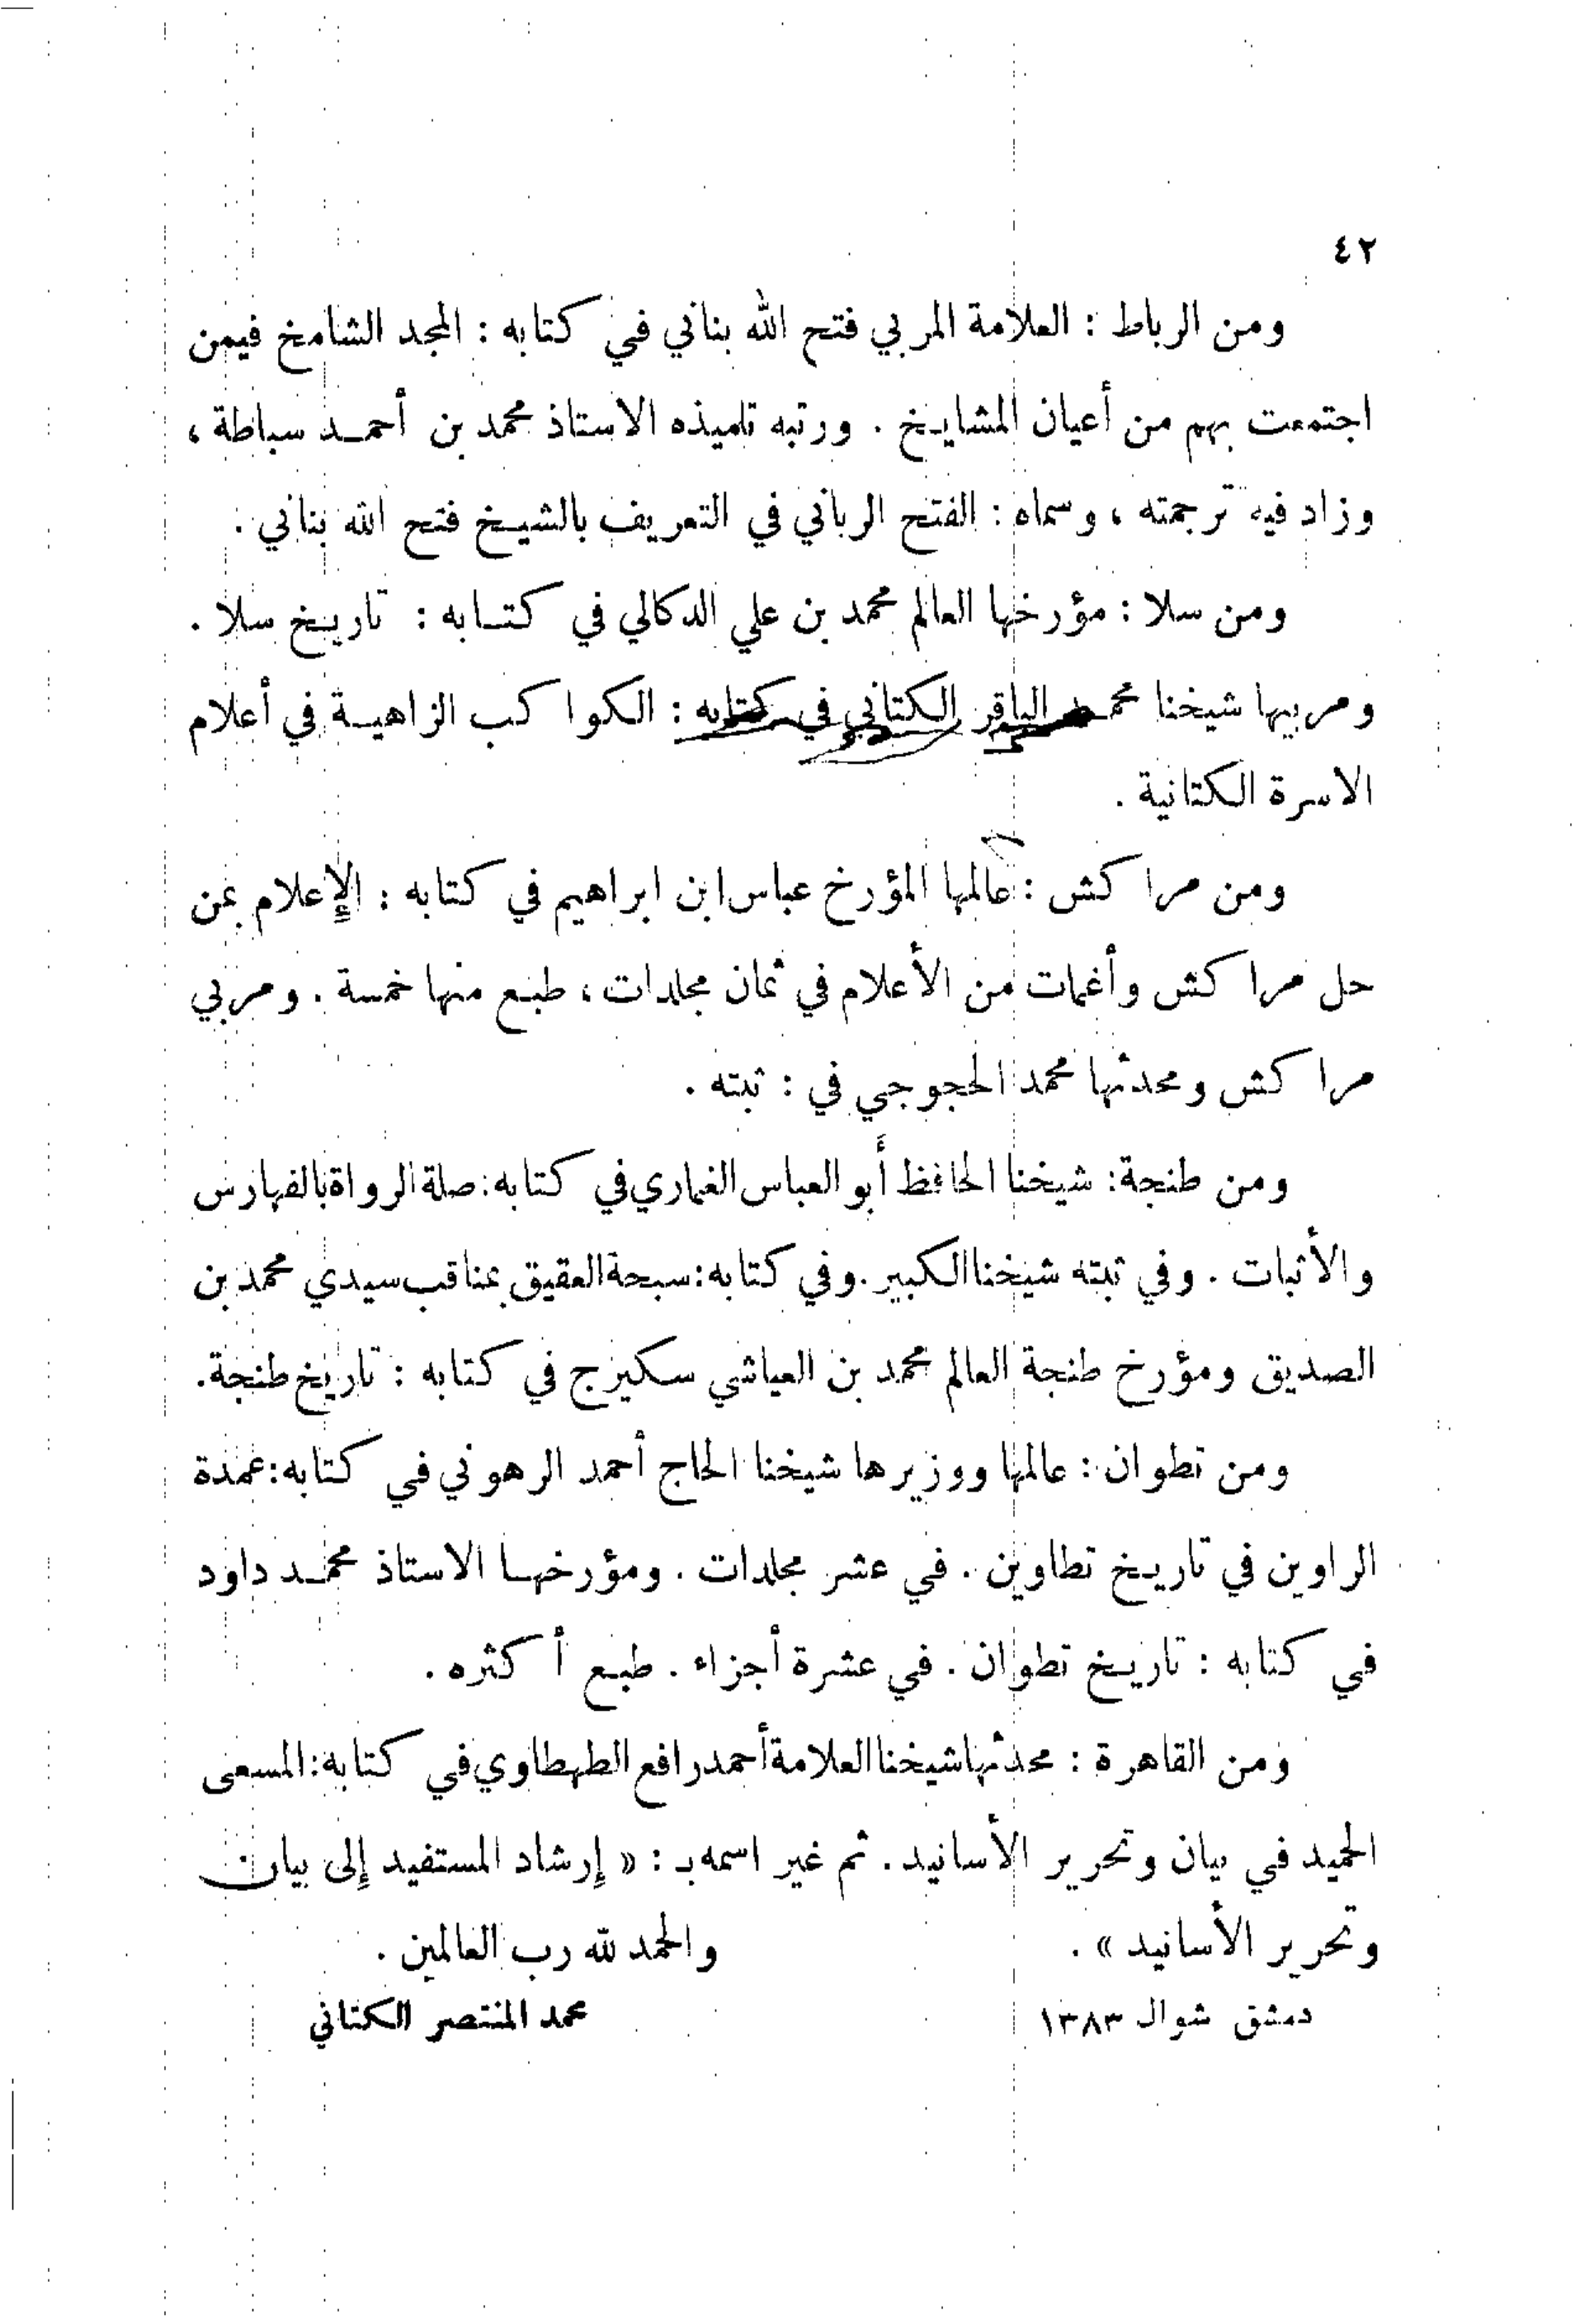 ٤٢
ومن الرباط : العلامة المربي فتح الله بناني في كتابه : المجد الشامخ فيمن
اجتمعت بهم من أعيان المشايخ . ورتبه تلميذه الاستاذ محمد بن أحمد سباطة ،
وزاد فيه ترجمته ، وسماه : الفتح الرباني في التعريف بالشيخ فتح الله بناني .
ومن سلا : مؤرخها العالم محمد بن علي الدكالي في كتابه : تاريخ سلا .
ومربيها شيخنا محمد الباقر الكتاني في كتابه : الكواكب الزاهية في أعلام
الاسرة الكتانية .
ومن مراكش : عالمها المؤرخ عباس ابن ابراهيم في كتابه : الإعلام بمن
حل مراكش وأغمات من الأعلام في ثمان مجلدات ، طبع منها خمسة . ومربي
مراكش ومحدثها محمد الحجوجي في : ثبته .
ومن طنجة : شيخنا الحافظ أبو العباس الغماري في كتابه : صلة الرواة بالفهارس
والأثبات . وفي ثبته شيخنا الكبير . وفي كتابه : سبحة العقيق بمناقب سيدي محمد بن
الصديق ومؤرخ طنجة العالم محمد بن العياشي سكيرج في كتابه : تاريخ طنجة .
ومن تطوان : عالمها ووزيرها شيخنا الحاج أحمد الرهوني في كتابه : عمدة
الراوين في تاريخ تطاوين . في عشر مجلدات . ومؤرخها الاستاذ محمد داود
في كتابه : تاريخ تطوان . في عشرة أجزاء . طبع أكثره .
ومن القاهرة : محدثها شيخنا العلامة أحمد رافع الطهطاوي في كتابه : المسعى
الحميد في بيان وتحرير الأسانيد . ثم غير اسمه بـ : « إرشاد المستفيد إلى بيان
وتحرير الأسانيد » . والحمد لله رب العالمين .
دمشق شوال ١٣٨٣ محمد المنتصر الكتاني